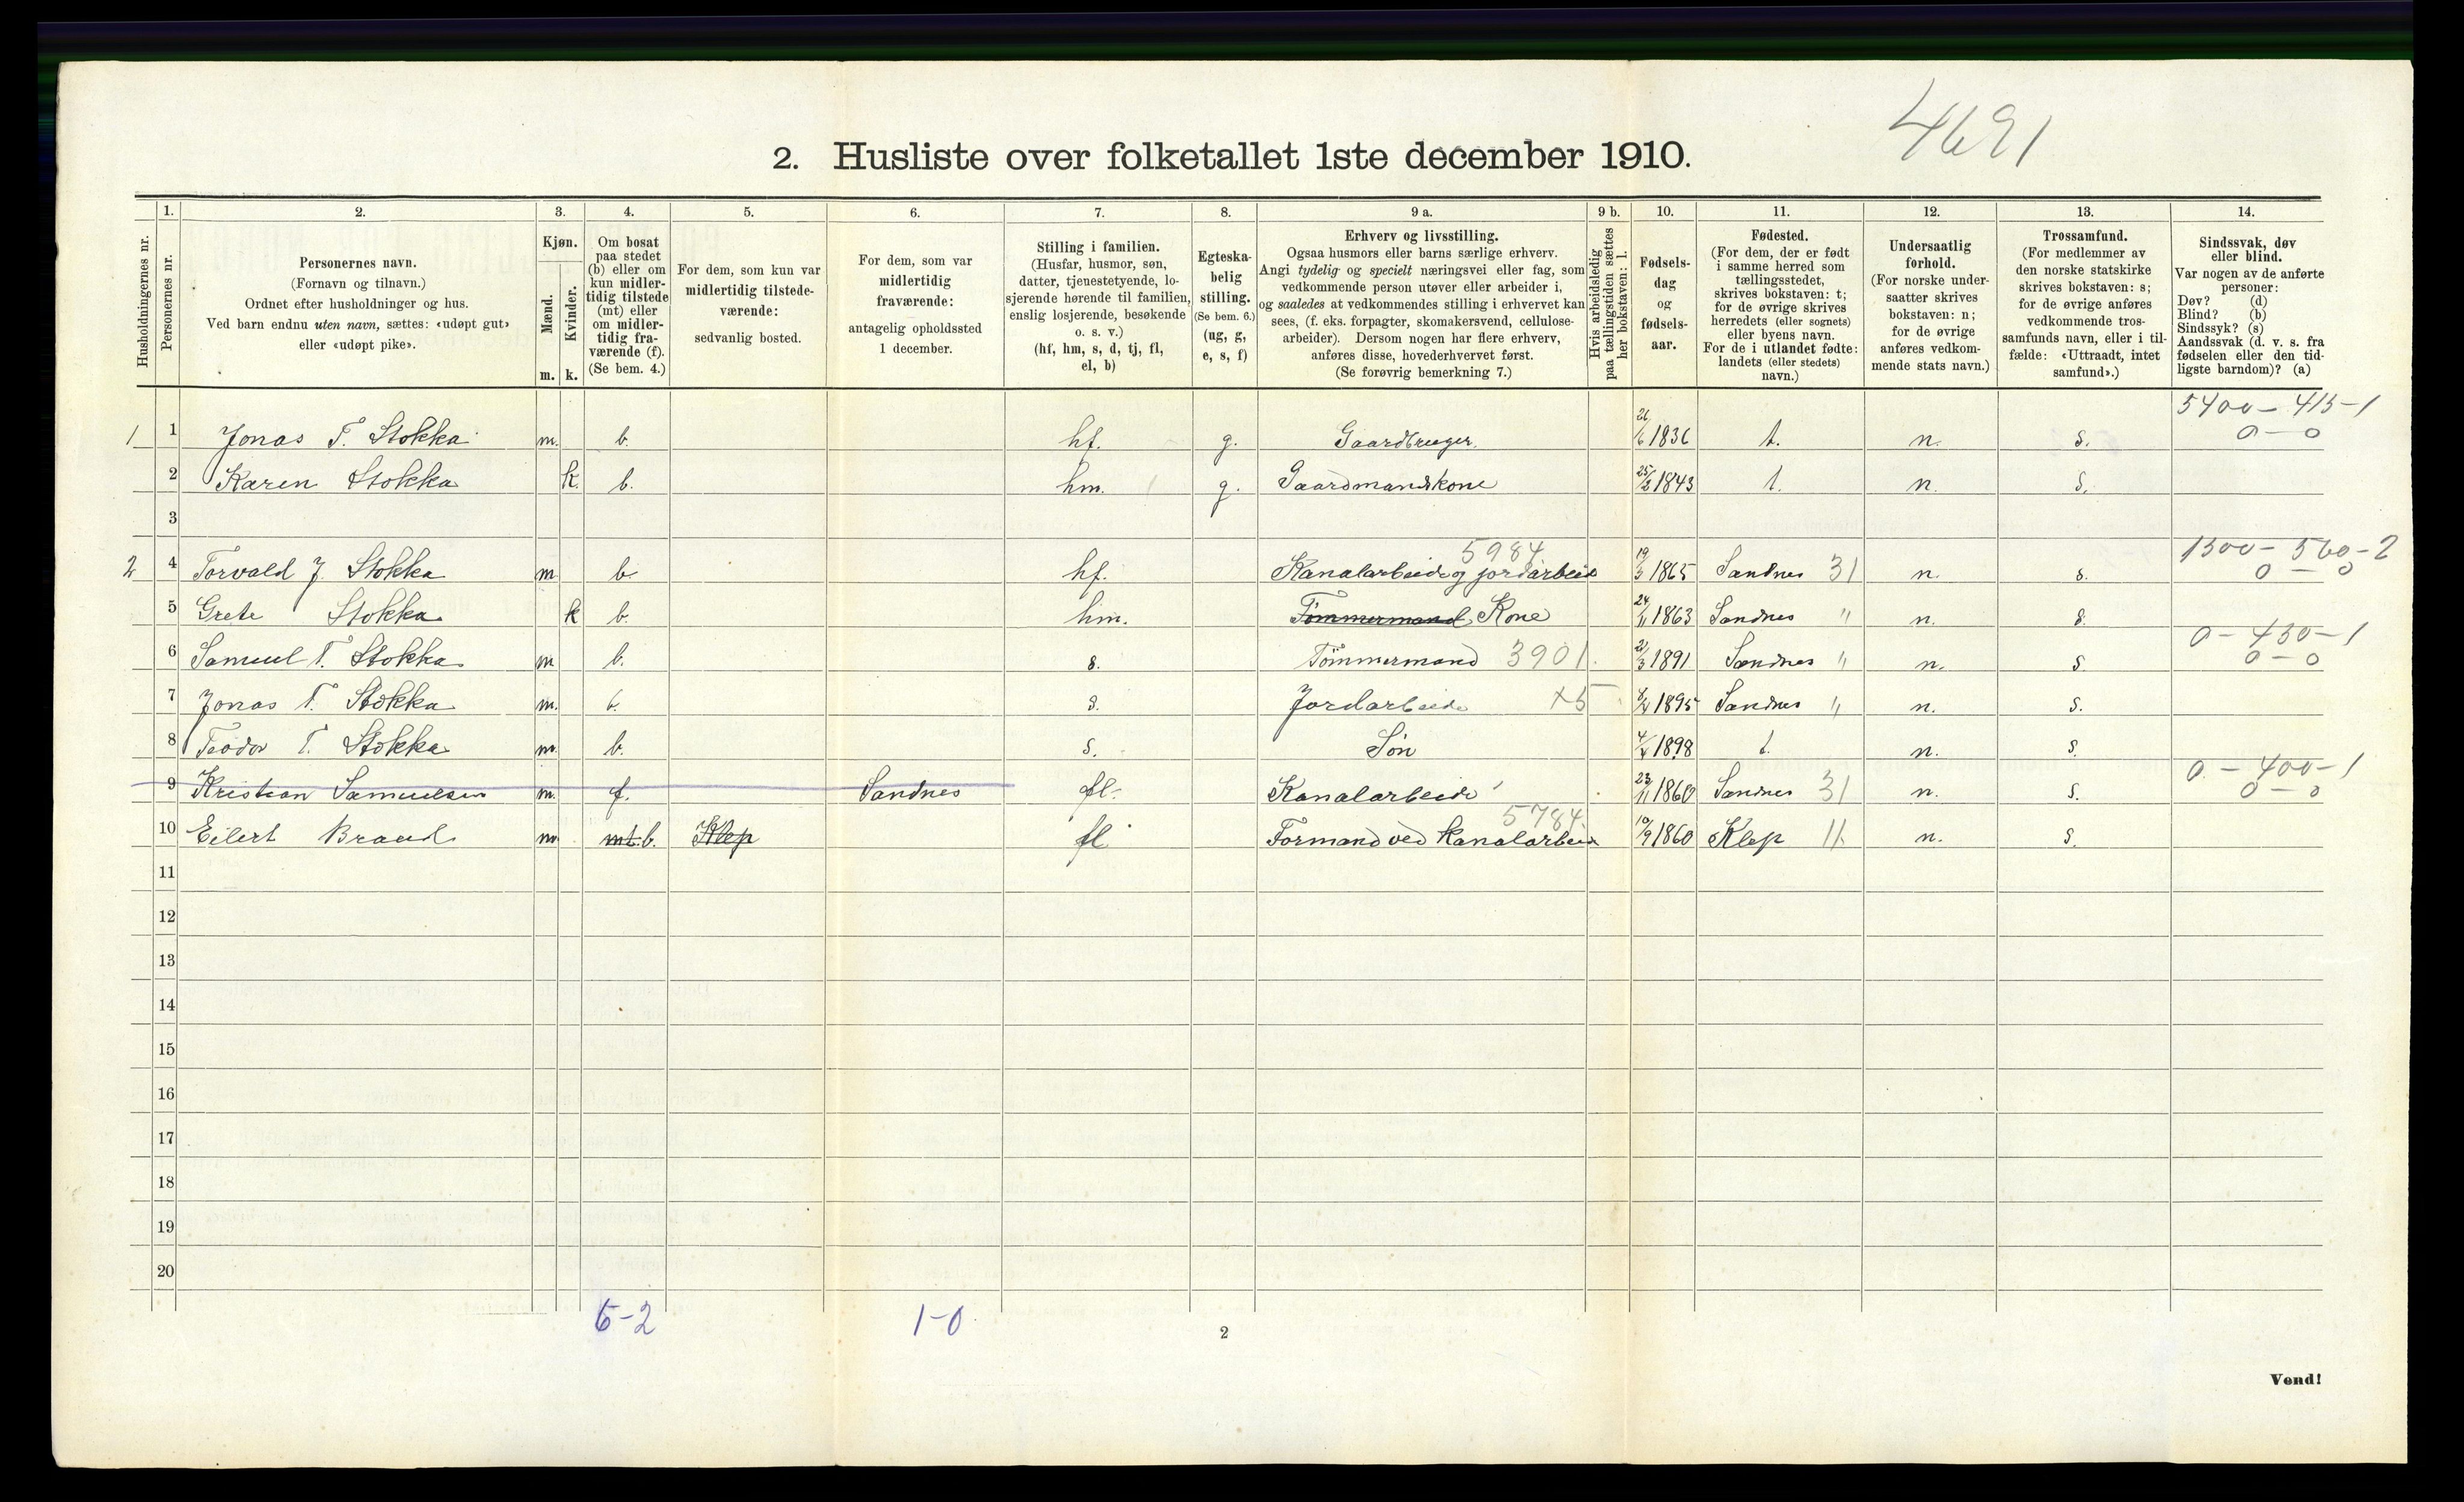 4691
2. Husliste over folketallet 1ste december 1910.
Husholdningernes nr.
1.
Personernes nr.
2.
Personernes navn.
(Fornavn og tilnavn.)
Ordnet efter husholdninger og hus.
Ved barn endnu uten navn, sættes: «udøpt gut»
eller «udøpt pike».
3.
Kjøn.
Mænd.
Kvinder.
m. k.
4.
Om bosat
paa stedet
(b) eller om
kun midler-
tidig tilstede
(mt) eller
om midler-
tidig fra-
værende (f).
(Se bem. 4.)
5.
For dem, som kun var
midlertidig tilstede-
værende:
sedvanlig bosted.
6.
For dem, som var
midlertidig
fraværende:
antagelig opholdssted
1 december.
7.
Stilling i familien.
(Husfar, husmor, søn,
datter, tjenestetyende, lo-
sjerende hørende til familien,
enslig losjerende, besøkende
o. s. v.)
(hf, hm, s, d, tj, fl,
el, b)
8.
Egteska-
belig
stilling.
(Se bem. 6.)
(ug, g,
e, s, f)
9 a.
Erhverv og livsstilling.
Ogsaa husmors eller barns særlige erhverv.
Angi tydelig og specielt næringsvei eller fag, som
vedkommende person utøver eller arbeider i,
og saaledes at vedkommendes stilling i erhvervet kan
sees, (f. eks. forpagter, skomakersvend, cellulose-
arbeider). Dersom nogen har flere erhverv,
anføres disse, hovederhvervet først.
(Se forøvrig bemerkning 7.)
9 b.
Hvis arbeidsledig
paa tællingstiden sættes
her bokstaven: l.
10.
Fødsels-
dag
og
fødsels-
aar.
11.
Fødested.
(For dem, der er født
i samme herred som
tællingsstedet,
skrives bokstaven: t;
for de øvrige skrives
herredets (eller sognets)
eller byens navn.
For de i utlandet fødte:
landets (eller stedets)
navn.)
12.
Undersaatlig
forhold.
(For norske under-
saatter skrives
bokstaven: n;
for de øvrige
anføres vedkom-
mende stats navn.)
13.
Trossamfund.
(For medlemmer av
den norske statskirke
skrives bokstaven: s;
for de øvrige anføres
vedkommende tros-
samfunds navn, eller i til-
fælde: «Uttraadt, intet
samfund».)
14.
Sindssvak, døv
eller blind.
Var nogen av de anførte
personer:
Døv? (d)
Blind? (b)
Sindssyk? (s)
Aandssvak (d. v. s. fra
fødselen eller den tid-
ligste barndom)? (a)
5400 - 415 - 1
1 1 Jonas T. Stokka m. b. hf. g. Gaardbruger. 1836 t. n. s. 0 - 0
2 Karen Stokka k. b. hm. g. Gaardmandskone 25/2 1843 t. n. s.
3
5984 1300 - 560 - 2
2 4 Torvald J. Stokka m b. hf. Kanalarbeide og jordarbeid 19/3 1865 Sandnes 31 n. s. 0 - 0
5 Grete Stokka k b. hm. Tømmermand Kone 24/11 1863 Sandnes " n. s.
0 - 430 - 1
6 Samuel T. Stokka m b. s. Tømmermand 3901. 21/3 1891 Sandnes " n. s 0 - 0
7 Jonas T. Stokka m. b. s. Jordarbeide x5 1895 Sandnes " n. s.
8 Teodor T. Stokka m. b. s. Søn 1898 t. n. s.
0 - 400 - 1
9 Kristian Samuelsen m. f. Sandnes fl. Kanalarbeide 23/11 1860 Sandnes 31 n. s. 0 - 0
5784.
10 Eilert Braud m. mt. b. Klep fl. Formand ved kanalarbeid 10/9 1860 Klep 11. n. s.
11
12
13
14
15
16
17
18
19
20
6-2 1-0
2
Vend!